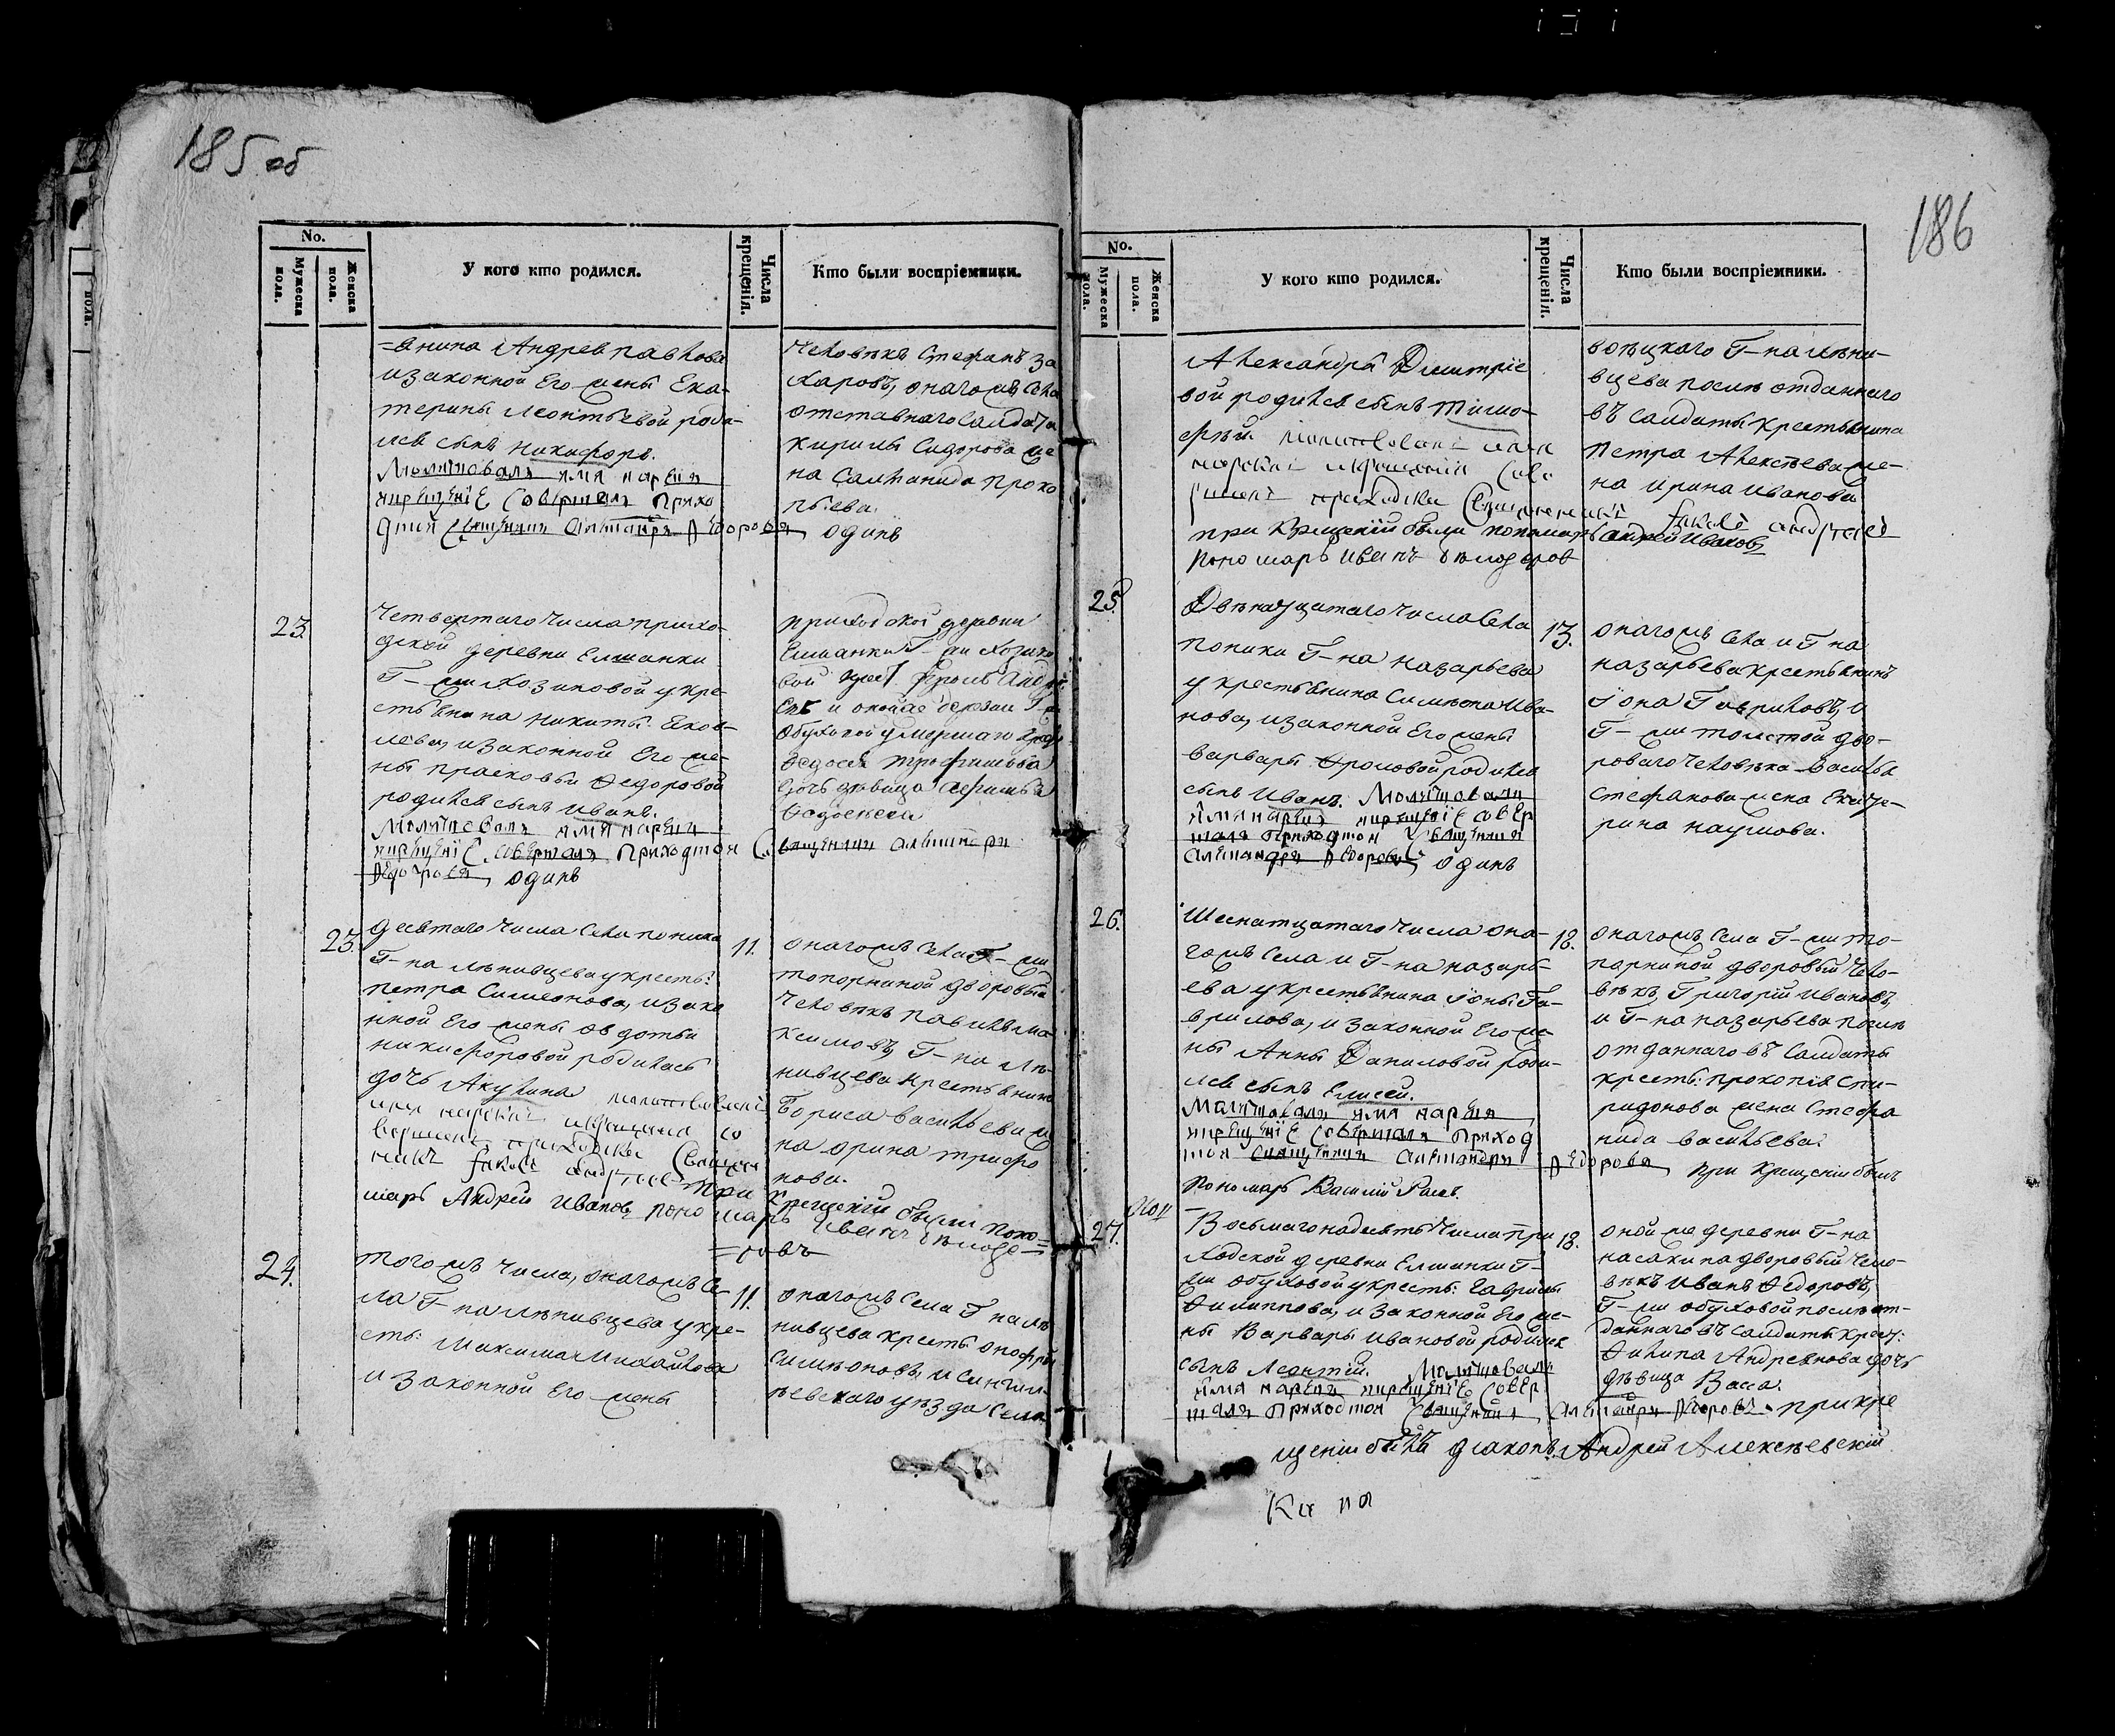 185 об
No.
Мужеска пола.
Женска пола.
У кого кто родился.
Числа крещенія.
Кто были воспріемники.
=янина Андрея павлова
изаконной Его жены Ека-
терины Леонтьевой роди-
лся сынъ никифоръ.
Молитвовалъ имя нарекъ
икрещенїе совершалъ прихо
дской священникъ Александръ Федоровъ, одинъ
человѣкъ Стефанъ За
харовъ, онагожъ села
отставнаго солдата
кирилы Сидорова же
на Саломонида проко
пьева.
23.
четвертаго числа прихо-
дской деревни Елшанки
Г-жи Хозиковой укре-
стьянина никиты Яков-
лева, изаконной Его же-
ны прасковьи Федоровой
родился сынъ иванъ.
Молитвовалъ имя нарекъ
икрещенїе совершалъ приходской священникъ Александръ
Федоровъ, одинъ
приходской деревни
Елшанки Г-жи Хозико
вой
и оной же деревни Г-жи
Обуховой умершаго
Федосея трофимова
дочь дѣвица
Федосеева
25.
девятаго числа села попики
Г-на лѣнивцева укресть:
петра Симеонова, изако
нной Его жены овдотьи
никифоровой родилась
дочь Акулина молитвовалъ
имя нарекъ икрещенїе со
вершалъ приходски священ
никъ при
крещенїи были поно=
марь Андрей Ивановъ пономарь Иванъ
=ровъ
11.
онагожъ села Г-жи
топорниной дворовый
человѣкъ павилъ ма
ксимовъ, Г-на лѣ-
нивцева крестьянина
Бориса васильева же
на орина трифо
нова.
24.
тогожъ числа, онагожъ се-
ла Г-на лѣнивцева укре-
сть: Максима Михайлова
изаконной Его жены
11.
онагожъ села Г-на лѣ
нивцева кресть: онофрїй
Симѣоновъ, и Сингил-
ѣевскаго уѣзда села
186
No.
Мужеска пола.
Женска пола.
У кого кто родился.
Числа крещенія.
Кто были воспріемники.
Александры Димитрїе
вой родился сынъ тимо-
фѣй. молитвовалъ имя
нарекъ икрещенїи сове
ршалъ приходски священникъ
при крещенїи были пономарь Андрей Ивановъ
пономарь Иванъ
Г-на лѣни-
вцева послѣ отданнаго
въ солдаты крестьянина
петра Алексѣева же-
на ирина иванова.
25.
Двѣнатцатаго числа села
попики Г-на назарьева
у крестьянина Симѣона ива-
нова, изаконной Его жены
варвары Фроловой родился
сынъ Иванъ. Молитвовалъ
имя нарекъ икрещенїе совер
шалъ приходской священникъ
Александръ Федоровъ, одинъ
13.
онагожъ села и Г-на
назарьева крестьянинъ
їона Гавриловъ, и
Г-жи толстой дво-
роваго человѣка василья
Стефанова жена Екате-
рина наумова.
26.
Шеснатцатаго числа она-
гожъ села и Г-на назарь-
ева укрестьянина їоны Га-
врилова, изаконной Его же-
ны Анны Даниловой роди-
лся сынъ Елисей.
Молитвовалъ имя нарекъ
икрещенїе совершалъ приход
ской священникъ Александръ Федоровъ, при крещенїи былъ
пономарь Василїй
18.
онагожъ села Г-жи то-
порниной дворовый чело-
вѣкъ, Григорїй Ивановъ,
и Г-на назарьева послѣ
отданнаго въ солдаты
кресть: прокопїя Спи-
ридонова жена Стефа
нида васильева.
27.
Восьмагонадесять числа при
ходской деревни Елшанки Г-
жи обуховой укресть: Гаврилы
Филиппова, изаконной Его же-
ны Варвары Ивановой родился
сынъ Леонтїй. Молитвовалъ
имя нарекъ икрещенїе совер
шалъ приходской священникъ Александръ Федоровъ. при кре
щенїи былъ дїаконъ Андрей Алексѣевскїй
18.
оной же деревни Г-на
насакина дворовый чело-
вѣкъ иванъ Федоровъ,
Г-жи обуховой послѣ от-
даннаго въ солдаты крест:
Филипа Андреянова дочь
дѣвица Васса.